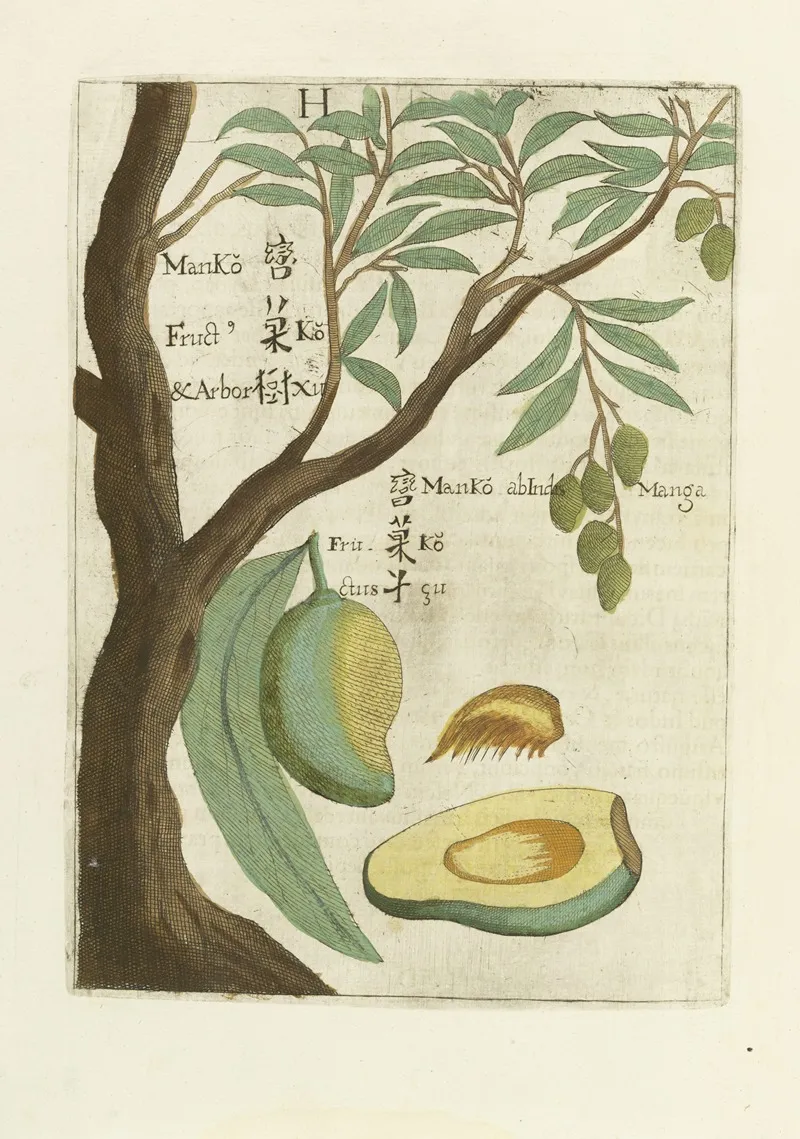 H
ManKŏ 蠻
Fruct⁹ 菓 Kŏ
& Arbor 樹 xú
蠻 ManKŏ ab Indis Manga
Fru- 菓 Kŏ
ctus 子 çu